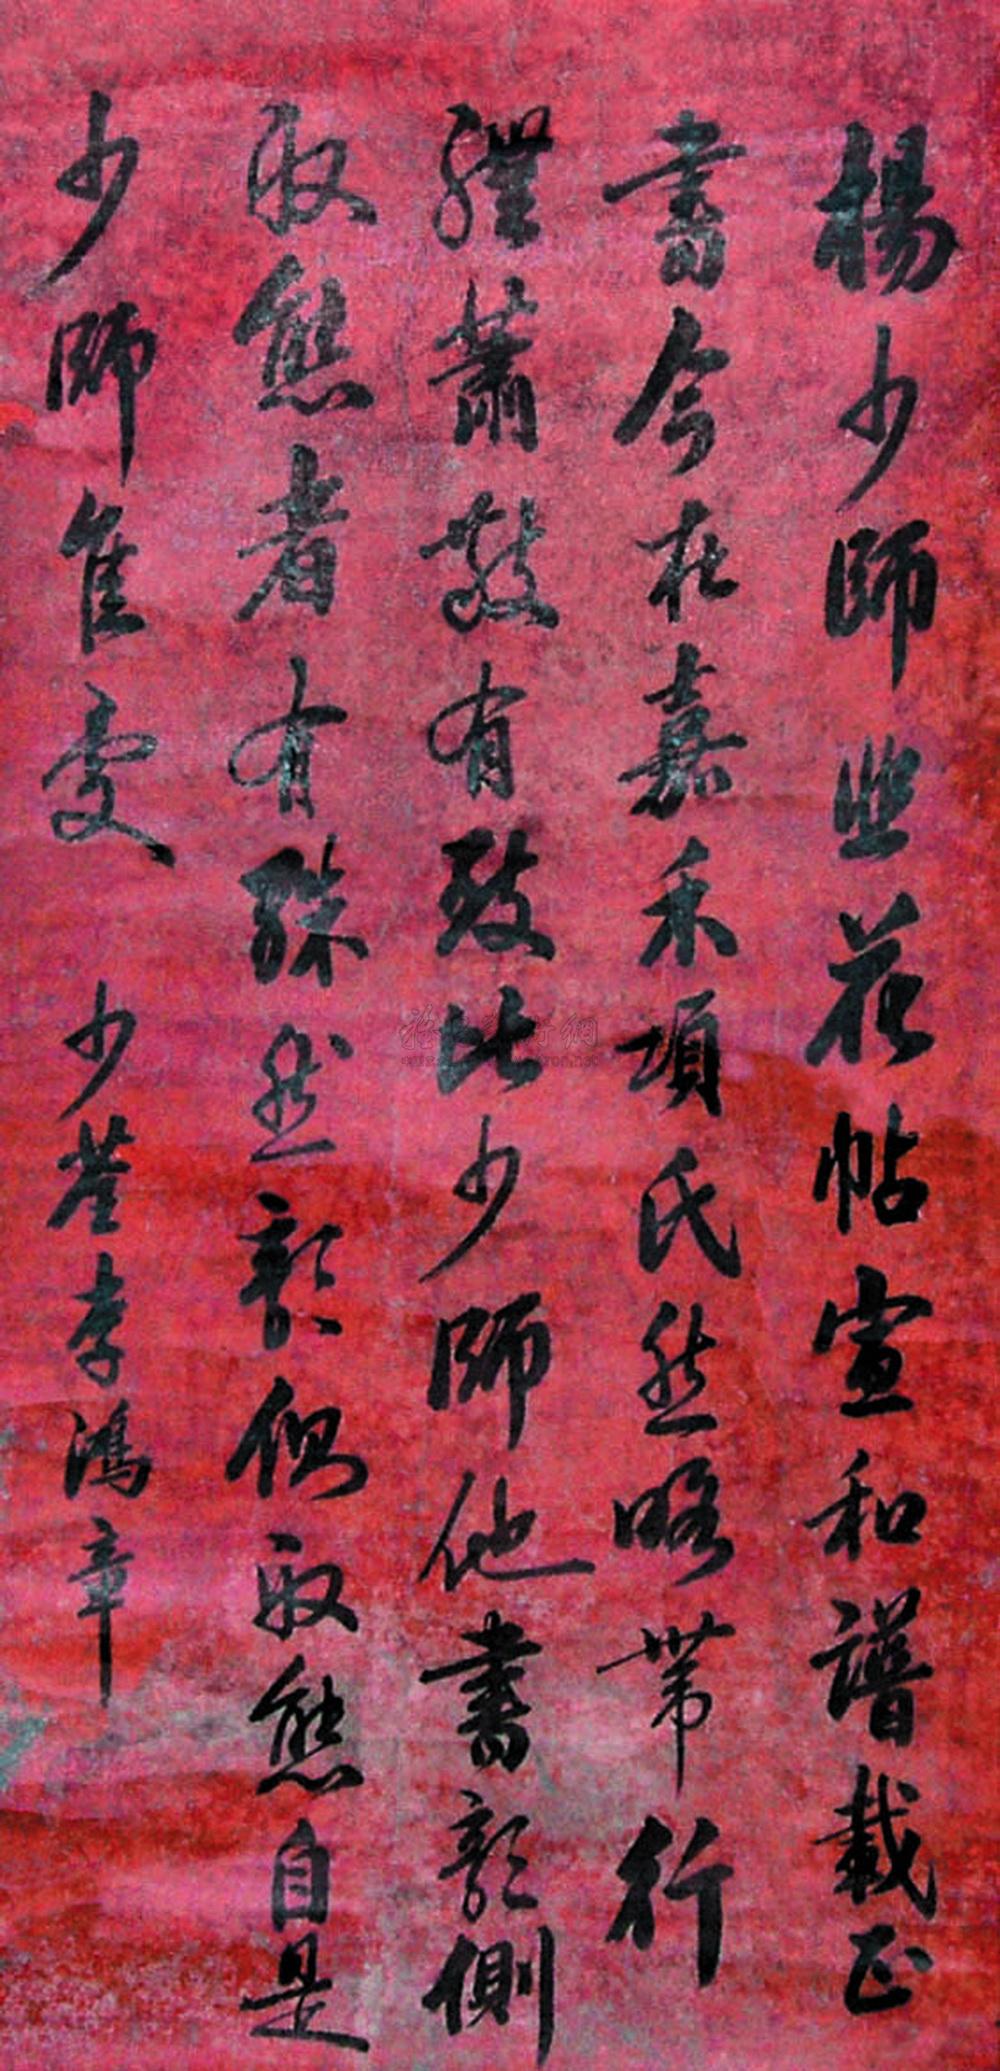 楊少師韭花帖宣和譜載正
書今在嘉禾項氏然略帶行
體蕭散有致比少師他書欹側
取態者有殊然欹側取態自是
少師佳處 少荃李鴻章